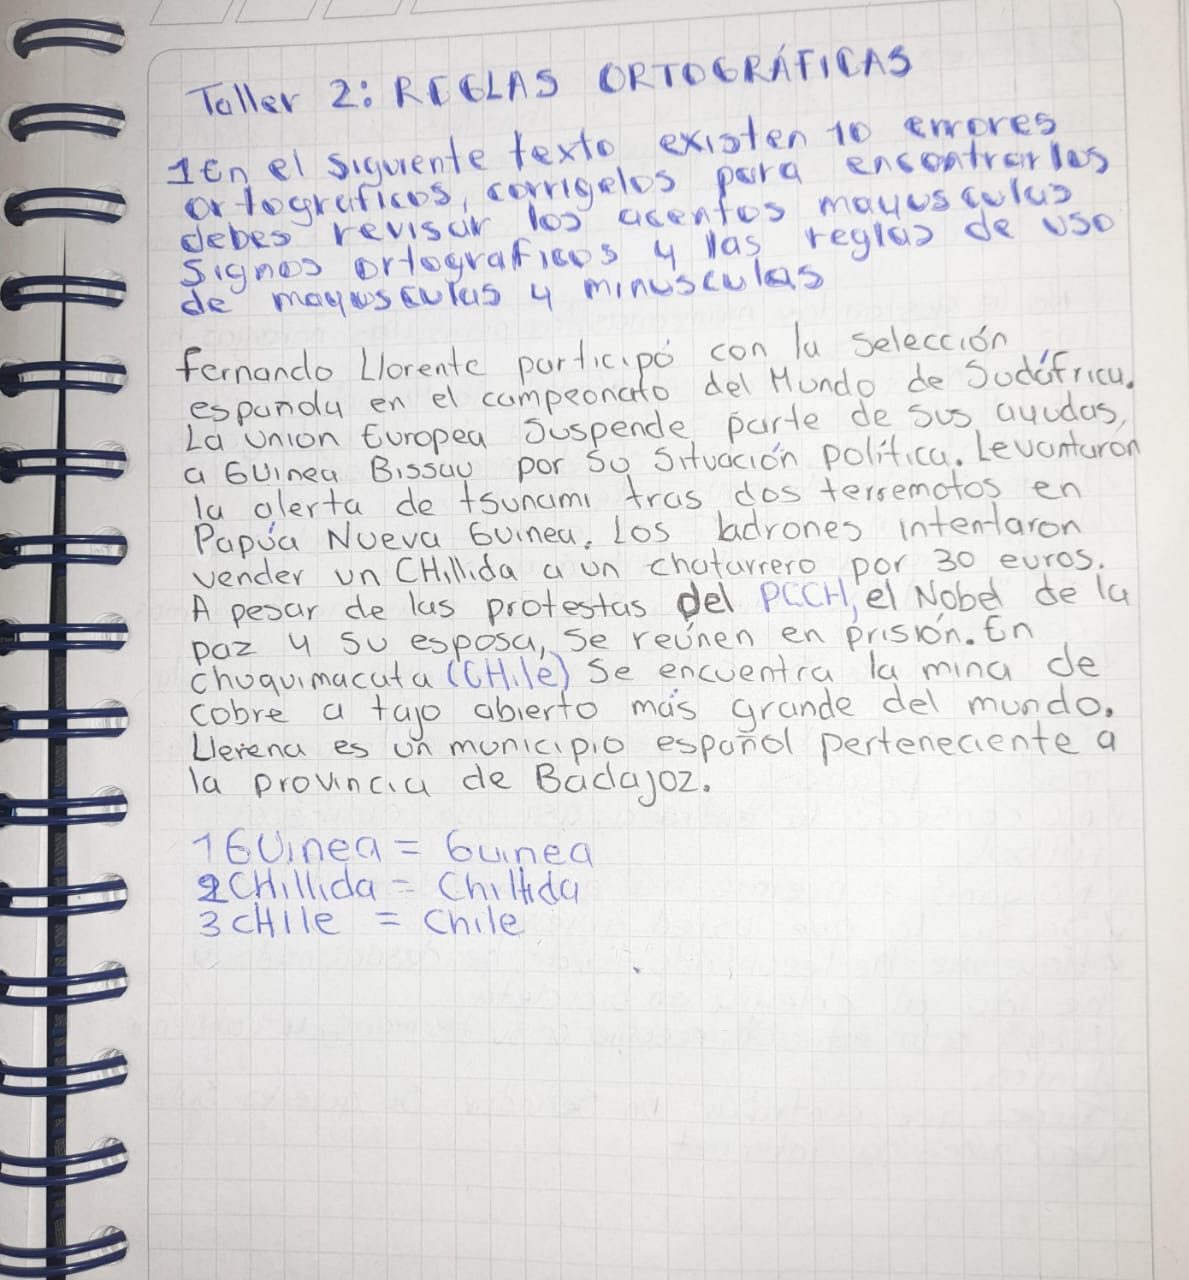 Taller 2: REGLAS ORTOGRÁFICAS
1 En el siguiente texto existen 10 errores
ortograficos, corrigelos para encontrarlos
debes revisar los acentos mayusculas
signos ortograficos y las reglas de uso
de mayusculas y minusculas
Fernando Llorente participó con la selección
espanola en el campeonato del Mundo de Sudáfrica.
La union Europea suspende parte de sus ayudas,
a GUinea Bissau por su situación política. Levantaron
la alerta de tsunami tras dos terremotos en
Papúa Nueva Guinea. Los ladrones intentaron
vender un CHillida a un chatarrero por 30 euros.
A pesar de las protestas del PCCH, el Nobel de la
paz y su esposa, se reúnen en prisión. En
chuquimacata (CHile) se encuentra la mina de
cobre a tajo abierto más grande del mundo.
Llerena es un municipio español perteneciente a
la provincia de Badajoz.
1 GUinea = Guinea
2 CHillida = Chillida
3 cHile = Chile